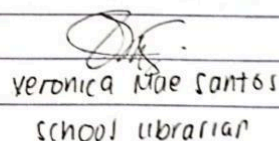 Veronica Mae Santos
school librarian